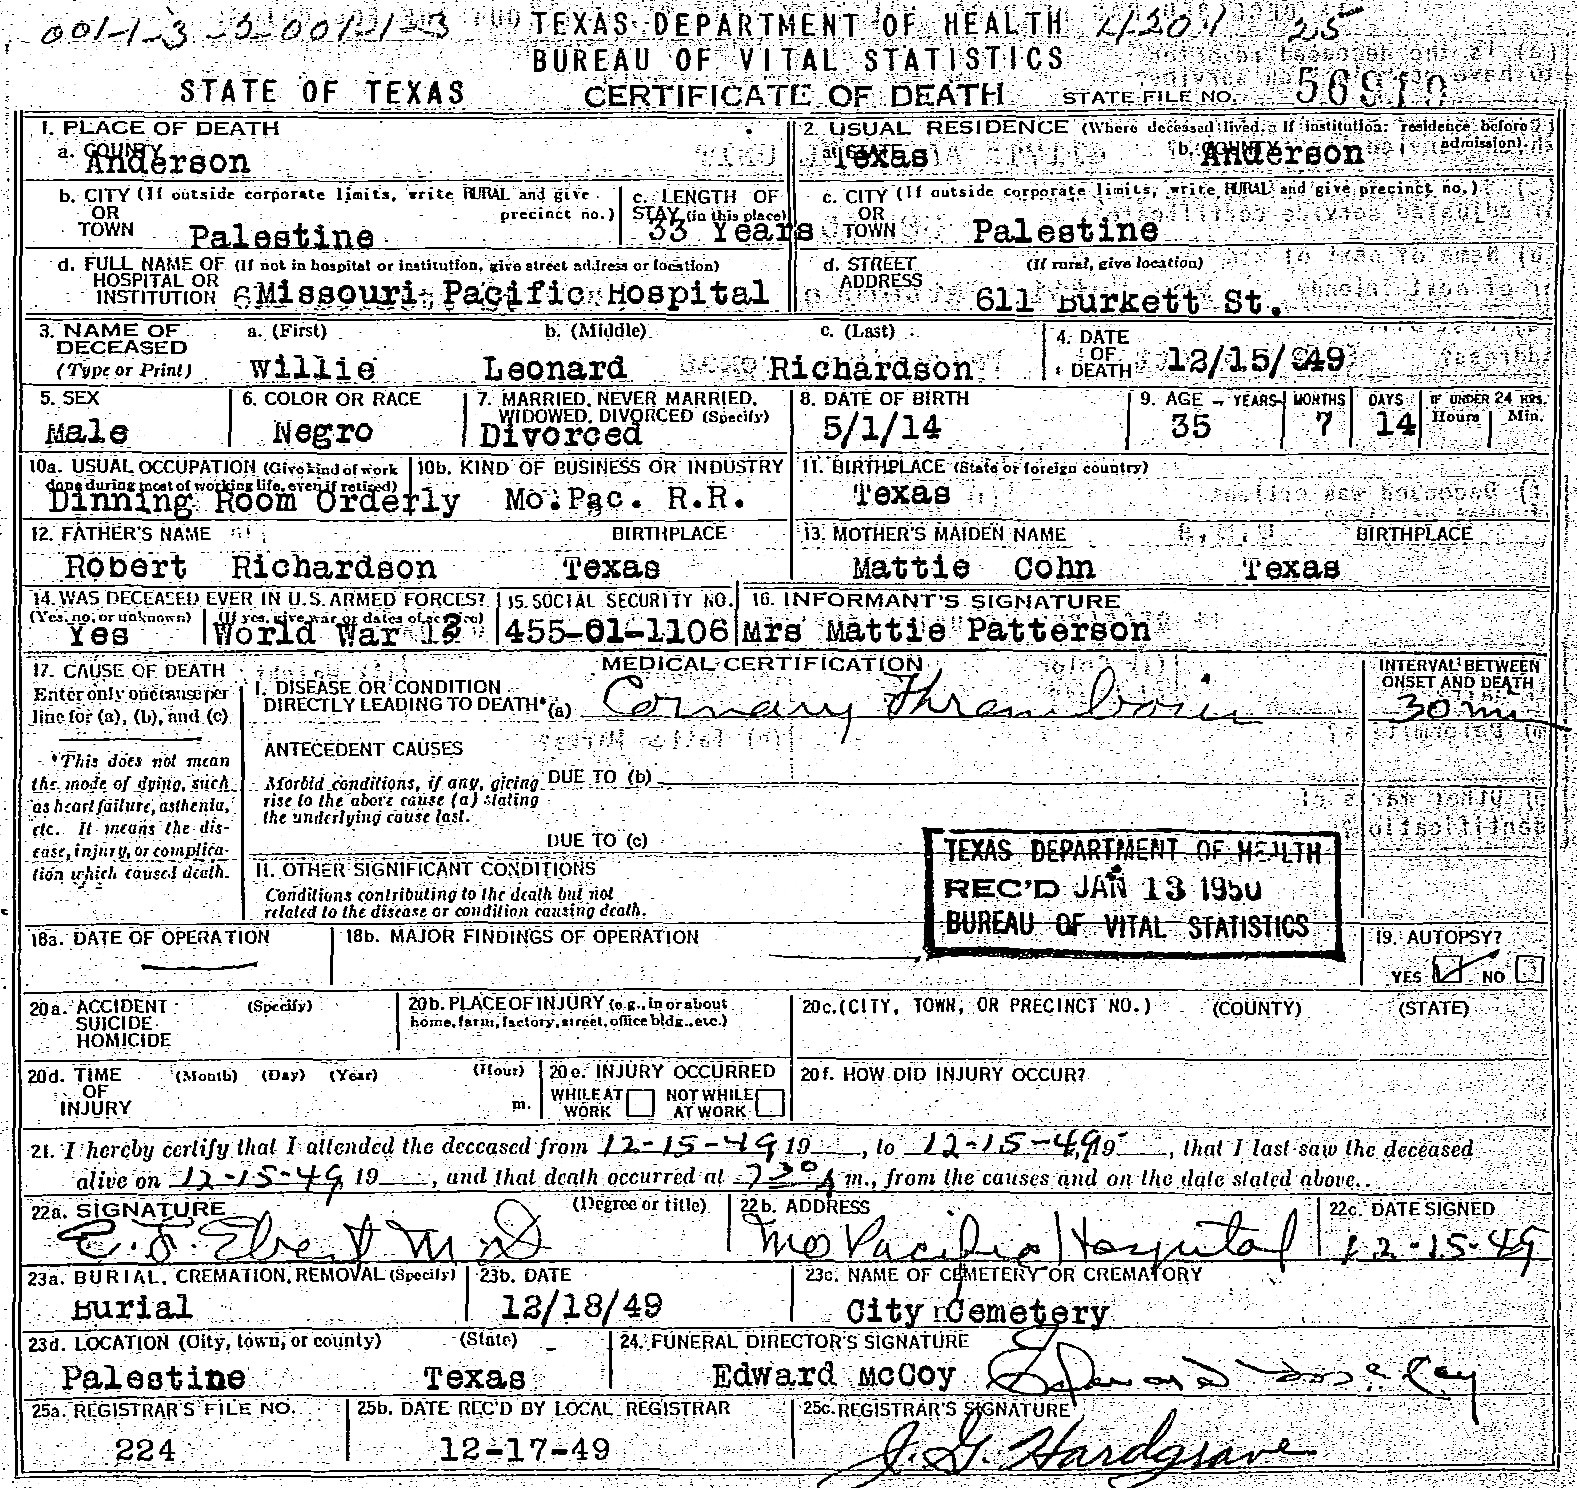 001-1-3 -3-001-1-3 TEXAS DEPARTMENT OF HEALTH 4201 25
BUREAU OF VITAL STATISTICS
STATE OF TEXAS CERTIFICATE OF DEATH STATE FILE NO. 56919
1. PLACE OF DEATH
a. COUNTY Anderson
2. USUAL RESIDENCE (Where deceased lived. If institution: residence before admission).
a. STATE Texas b. COUNTY Anderson
b. CITY (If outside corporate limits, write RURAL and give precinct no.)
OR
TOWN Palestine
c. LENGTH OF
STAY (in this place)
33 Years
c. CITY (If outside corporate limits, write RURAL and give precinct no.)
OR
TOWN Palestine
d. FULL NAME OF (If not in hospital or institution, give street address or location)
HOSPITAL OR
INSTITUTION Missouri Pacific Hospital
d. STREET (If rural, give location)
ADDRESS 611 Burkett St.
3. NAME OF a. (First) b. (Middle) c. (Last)
DECEASED
(Type or Print) Willie Leonard Richardson
4. DATE
OF
DEATH 12/15/49
5. SEX
Male
6. COLOR OR RACE
Negro
7. MARRIED, NEVER MARRIED,
WIDOWED, DIVORCED (Specify)
Divorced
8. DATE OF BIRTH
5/1/14
9. AGE - YEARS MONTHS DAYS IF UNDER 24 HRS.
Hours Min.
35 7 14
10a. USUAL OCCUPATION (Give kind of work
done during most of working life, even if retired)
Dinning Room Orderly
10b. KIND OF BUSINESS OR INDUSTRY
Mo. Pac. R.R.
11. BIRTHPLACE (State or foreign country)
Texas
12. FATHER'S NAME BIRTHPLACE
Robert Richardson Texas
13. MOTHER'S MAIDEN NAME BIRTHPLACE
Mattie Cohn Texas
14. WAS DECEASED EVER IN U.S. ARMED FORCES?
(Yes, no, or unknown) (If yes, give war or dates of service)
Yes World War
15. SOCIAL SECURITY NO.
455-01-1106
16. INFORMANT'S SIGNATURE
Mrs Mattie Patterson
17. CAUSE OF DEATH
Enter only one cause per
line for (a), (b), and (c)
*This does not mean
the mode of dying, such
as heart failure, asthenia,
etc. It means the dis-
ease, injury, or complica-
tion which caused death.
MEDICAL CERTIFICATION
I. DISEASE OR CONDITION
DIRECTLY LEADING TO DEATH*(a) Cornary Thrombosis
ANTECEDENT CAUSES
Morbid conditions, if any, giving DUE TO (b)
rise to the above cause (a) stating
the underlying cause last.
DUE TO (c)
II. OTHER SIGNIFICANT CONDITIONS
Conditions contributing to the death but not
related to the disease or condition causing death.
INTERVAL BETWEEN
ONSET AND DEATH
30 min
TEXAS DEPARTMENT OF HEALTH
REC'D JAN 13 1950
BUREAU OF VITAL STATISTICS
18a. DATE OF OPERATION
18b. MAJOR FINDINGS OF OPERATION
19. AUTOPSY?
YES NO
20a. ACCIDENT (Specify)
SUICIDE
HOMICIDE
20b. PLACE OF INJURY (e.g., in or about
home, farm, factory, street, office bldg., etc.)
20c. (CITY, TOWN, OR PRECINCT NO.) (COUNTY) (STATE)
20d. TIME (Month) (Day) (Year) (Hour)
OF
INJURY m.
20e. INJURY OCCURRED
WHILE AT NOT WHILE
WORK AT WORK
20f. HOW DID INJURY OCCUR?
21. I hereby certify that I attended the deceased from 12-15-49, 19 , to 12-15-49, 19 , that I last saw the deceased
alive on 12-15-49, 19 , and that death occurred at 7 30 A m., from the causes and on the date stated above.
22a. SIGNATURE (Degree or title)
M.D
22b. ADDRESS
Mo Pacific Hospital
22c. DATE SIGNED
12-15-49
23a. BURIAL, CREMATION, REMOVAL (Specify)
Burial
23b. DATE
12/18/49
23c. NAME OF CEMETERY OR CREMATORY
City Cemetery
23d. LOCATION (City, town, or county) (State)
Palestine Texas
24. FUNERAL DIRECTOR'S SIGNATURE
Edward McCoy Edward McCoy
25a. REGISTRAR'S FILE NO.
224
25b. DATE REC'D BY LOCAL REGISTRAR
12-17-49
25c. REGISTRAR'S SIGNATURE
J. G. Hardgrave